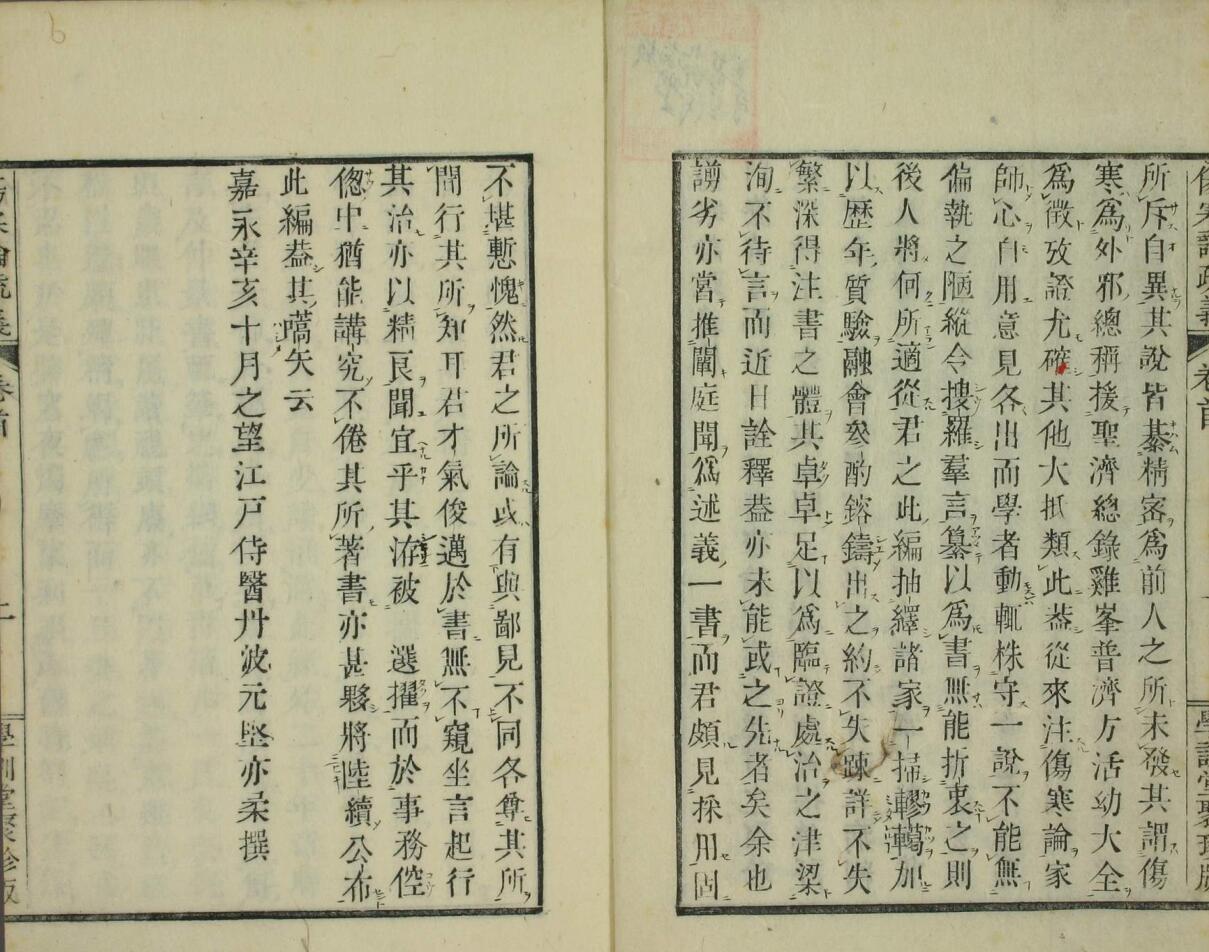 所斥自異其說皆綦精密爲前人之所未發其謂傷
寒爲外邪總稱援聖濟總錄雞峯普濟方活幼大全
爲徵攷證尤確其他大抵類此葢從來注傷寒論家
師心自用意見各出而學者動輒株守一說不能無
偏執之陋縱令摟羅羣言纂以爲書無能折衷之則
後人將何所適從君之此編抽繹諸家一掃轇轕加
以歷年質驗融會參酌鎔鑄出之約不失踈詳不失
繁深得注書之體其卓卓足以爲臨證處治之津梁
洵不待言而近日詮釋葢亦未能或之先者矣余也
譾劣亦嘗推闡庭聞爲述義一書而君頗見採用固
不堪慙愧然君之所論或有與鄙見不同各尊其所
聞行其所知耳君才氣俊邁於書無不窺坐言起行
其治亦以精良聞宜乎其洊被 選擢而於事務倥
偬中猶能講究不倦其所著書亦甚夥將陸續公布
此編葢其蒿矢云
嘉永辛亥十月之望江戶侍醫丹波元堅亦柔撰